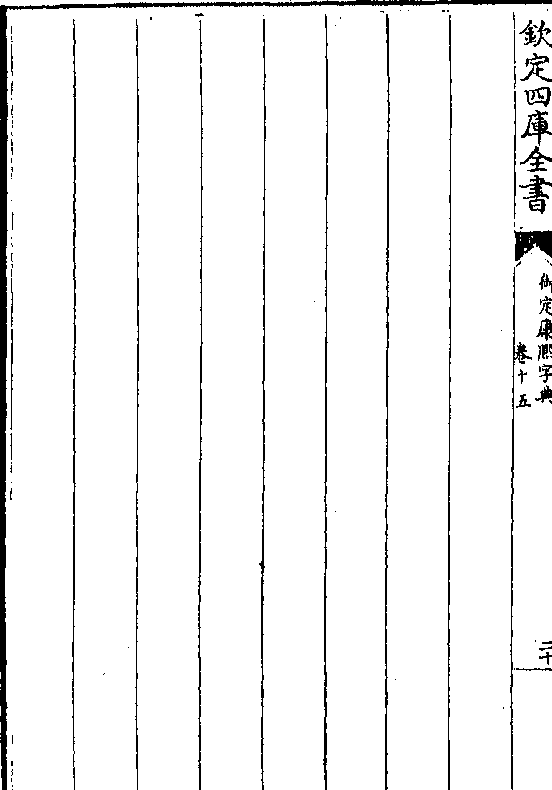 欽定四庫全書
御定康熙字典
卷十五
二十